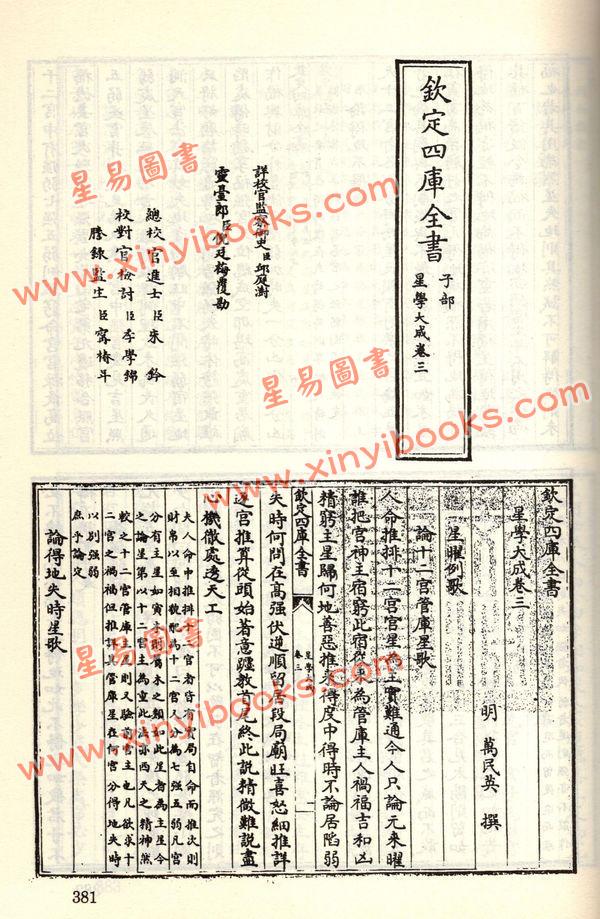 欽定四庫全書
子部
星學大成卷三
詳校官監察御史臣邱庭漋
靈臺郎臣倪廷梅覆勘
總校官進士臣朱鈐
校對官檢討臣李學錦
謄錄監生臣甯椿年
星易圖書
www.xinyibooks.com
星易圖書
www.xinyibooks.com
欽定四庫全書
星學大成卷三
明 萬民英 撰
星曜例歌
論十二宮管庫星歌
人命推排十二宮宮星為主實難通今人只論元來曜
誰把宮神主宿窮此宿從來為管庫主人禍福吉和凶
精窮主星歸何地善惡推之得度中得時不論居陷弱
欽定四庫全書
星學大成
卷三
一
失時何問在高强伏逆順留居段局廟旺喜怒細推詳
逐宮推算從頭始著意躔教首尾終此説精微難説盡
心機微處透天工
夫人命中推排十二宮者皆有定局自命而推次則
財帛以至相貌配為十二宮人分為七强五弱凡宮
分有主星如寅亥則屬木之類如此星者為主星今
之論星第以十二宮主為重此法亦西天之精神然
較之十二宮管庫主凡則又驗於宮主也凡欲求十
二宮之禍福但推詳其管庫星在何宮分得地失時
以別强弱
庶乎論定
論得地失時星歌
星易圖書
www.xinyibooks.com
381